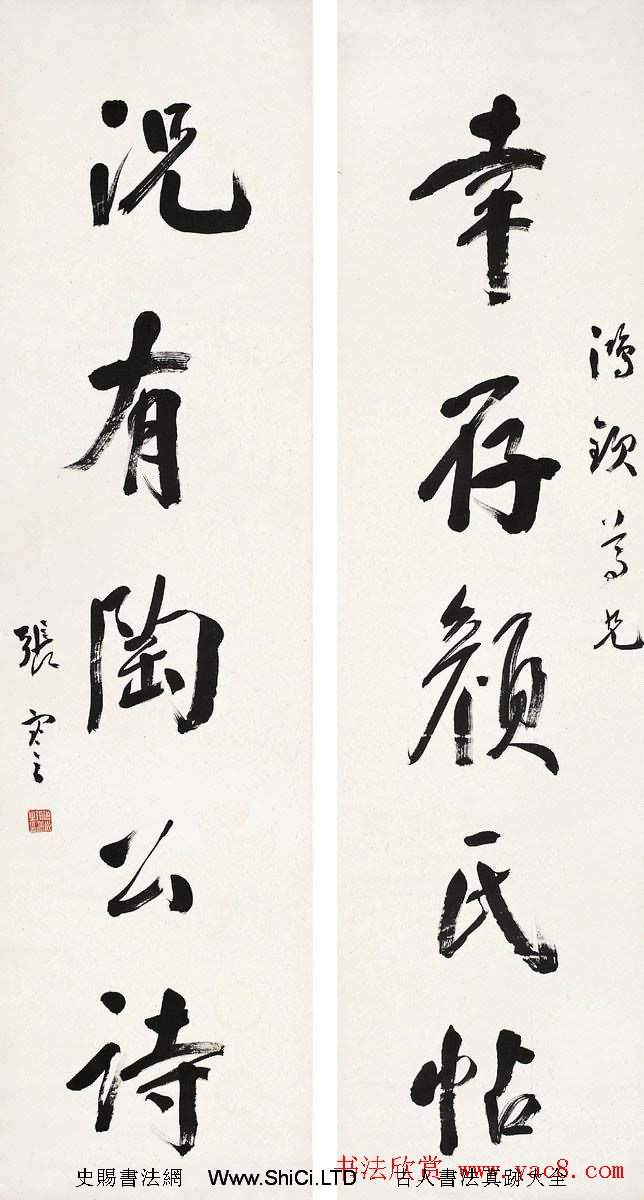 幸存顏氏帖
鴻欽尊兄
況有陶公詩
張
书法欣赏 www.yac8.com
史賜書法網 Www.ShiCi.LTD 古人書法真跡大全